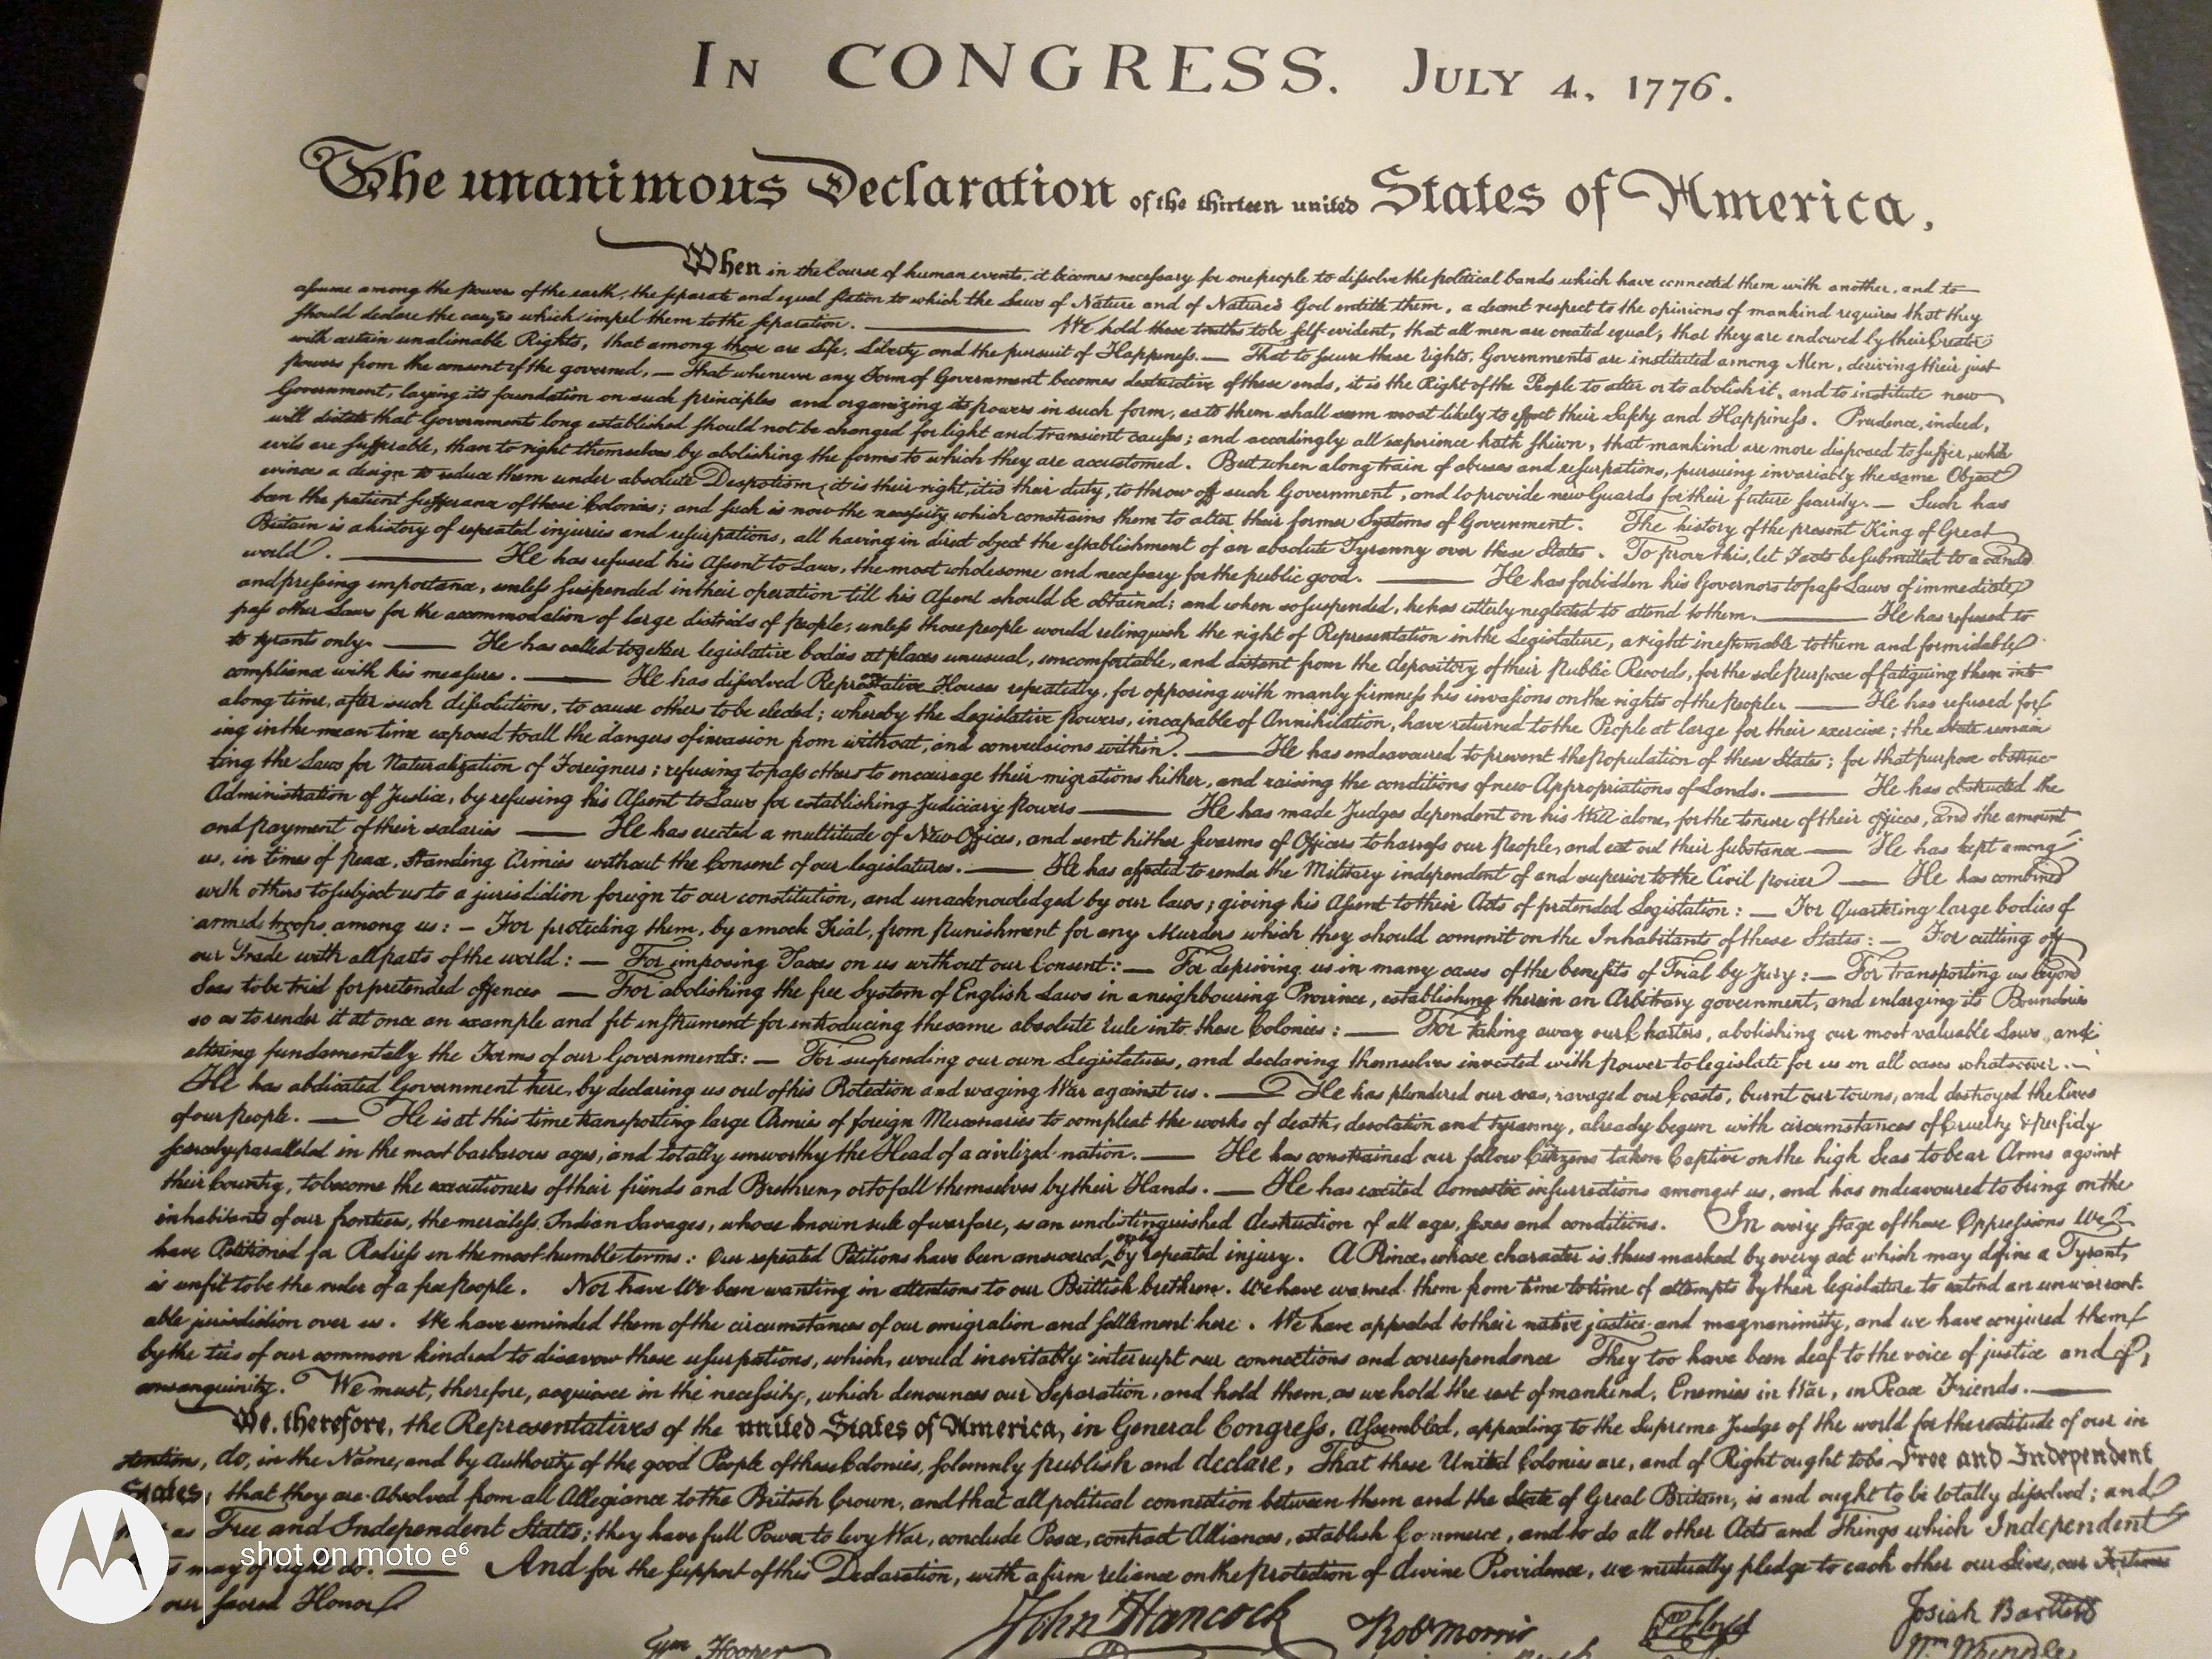 IN CONGRESS. JULY 4, 1776.
The unanimous Declaration of the thirteen united States of America,
When in the Course of human events, it becomes necessary for one people to dissolve the political bands which have connected them with another, and to
assume among the powers of the earth, the separate and equal station to which the Laws of Nature and of Nature's God entitle them, a decent respect to the opinions of mankind requires that they
should declare the causes which impel them to the separation. — We hold these truths to be self-evident, that all men are created equal, that they are endowed by their Creator
with certain unalienable Rights, that among these are Life, Liberty and the pursuit of Happiness. — That to secure these rights, Governments are instituted among Men, deriving their just
powers from the consent of the governed, — That whenever any Form of Government becomes destructive of these ends, it is the Right of the People to alter or to abolish it, and to institute new
Government, laying its foundation on such principles and organizing its powers in such form, as to them shall seem most likely to effect their Safety and Happiness. Prudence, indeed,
will dictate that Governments long established should not be changed for light and transient causes; and accordingly all experience hath shewn, that mankind are more disposed to suffer, while
evils are sufferable, than to right themselves by abolishing the forms to which they are accustomed. But when a long train of abuses and usurpations, pursuing invariably the same Object
evinces a design to reduce them under absolute Despotism, it is their right, it is their duty, to throw off such Government, and to provide new Guards for their future security. — Such has
been the patient sufferance of these Colonies; and such is now the necessity which constrains them to alter their former Systems of Government. The history of the present King of Great
Britain is a history of repeated injuries and usurpations, all having in direct object the establishment of an absolute Tyranny over these States. To prove this, let Facts be submitted to a candid
world. — He has refused his Assent to Laws, the most wholesome and necessary for the public good. — He has forbidden his Governors to pass Laws of immediate
and pressing importance, unless suspended in their operation till his Assent should be obtained; and when so suspended, he has utterly neglected to attend to them. — He has refused to
pass other Laws for the accommodation of large districts of people, unless those people would relinquish the right of Representation in the Legislature, a right inestimable to them and formidable
to tyrants only. — He has called together legislative bodies at places unusual, uncomfortable, and distant from the depository of their Public Records, for the sole purpose of fatiguing them into
compliance with his measures. — He has dissolved Representative Houses repeatedly, for opposing with manly firmness his invasions on the rights of the people. — He has refused for
a long time, after such dissolutions, to cause others to be elected; whereby the Legislative powers, incapable of Annihilation, have returned to the People at large for their exercise; the State remain
ing in the mean time exposed to all the dangers of invasion from without, and convulsions within. — He has endeavoured to prevent the population of these States; for that purpose obstruc-
ting the Laws for Naturalization of Foreigners; refusing to pass others to encourage their migrations hither, and raising the conditions of new Appropriations of Lands. — He has obstructed the
Administration of Justice, by refusing his Assent to Laws for establishing Judiciary powers — He has made Judges dependent on his Will alone, for the tenure of their offices, and the amount
and payment of their salaries — He has erected a multitude of New Offices, and sent hither swarms of Officers to harrass our People, and eat out their substance — He has kept among
us, in times of peace, Standing Armies without the Consent of our legislatures. — He has affected to render the Military independent of and superior to the Civil power — He has combined
with others to subject us to a jurisdiction foreign to our constitution, and unacknowledged by our laws; giving his Assent to their Acts of pretended Legislation: — For Quartering large bodies of
armed troops among us: — For protecting them, by a mock Trial, from punishment for any Murders which they should commit on the Inhabitants of these States: — For cutting off
our Trade with all parts of the world: — For imposing Taxes on us without our Consent: — For depriving us in many cases of the benefits of Trial by Jury: — For transporting us beyond
Seas to be tried for pretended offences — For abolishing the free System of English Laws in a neighbouring Province, establishing therein an Arbitrary government, and enlarging its Boundaries
so as to render it at once an example and fit instrument for introducing the same absolute rule into these Colonies: — For taking away our Charters, abolishing our most valuable Laws, and
altering fundamentally the Forms of our Governments: — For suspending our own Legislatures, and declaring themselves invested with power to legislate for us in all cases whatsoever. —
He has abdicated Government here, by declaring us out of his Protection and waging War against us. — He has plundered our seas, ravaged our Coasts, burnt our towns, and destroyed the lives
of our people. — He is at this time transporting large Armies of foreign Mercenaries to compleat the works of death, desolation and tyranny, already begun with circumstances of Cruelty & perfidy
scarcely paralleled in the most barbarous ages, and totally unworthy the Head of a civilized nation. — He has constrained our fellow Citizens taken Captive on the high Seas to bear Arms against
their Country, to become the executioners of their friends and Brethren, or to fall themselves by their Hands. — He has excited domestic insurrections amongst us, and has endeavoured to bring on the
inhabitants of our frontiers, the merciless Indian Savages, whose known rule of warfare, is an undistinguished destruction of all ages, sexes and conditions. In every stage of these Oppressions We
have Petitioned for Redress in the most humble terms: Our repeated Petitions have been answered only by repeated injury. A Prince, whose character is thus marked by every act which may define a Tyrant,
is unfit to be the ruler of a free People. Nor have We been wanting in attentions to our Brittish brethren. We have warned them from time to time of attempts by their legislature to extend an unwarrant-
able jurisdiction over us. We have reminded them of the circumstances of our emigration and settlement here. We have appealed to their native justice and magnanimity, and we have conjured them
by the ties of our common kindred to disavow these usurpations, which, would inevitably interrupt our connections and correspondence They too have been deaf to the voice of justice and of
consanguinity. We must, therefore, acquiesce in the necessity, which denounces our Separation, and hold them, as we hold the rest of mankind, Enemies in War, in Peace Friends. —
We, therefore, the Representatives of the united States of America, in General Congress, Assembled, appealing to the Supreme Judge of the world for the rectitude of our in
tentions, do, in the Name, and by Authority of the good People of these Colonies, solemnly publish and declare, That these United Colonies are, and of Right ought to be Free and Independent
States; that they are Absolved from all Allegiance to the British Crown, and that all political connection between them and the State of Great Britain, is and ought to be totally dissolved; and
as Free and Independent States, they have full Power to levy War, conclude Peace, contract Alliances, establish Commerce, and to do all other Acts and Things which Independent
may of right do. — And for the support of this Declaration, with a firm reliance on the protection of divine Providence, we mutually pledge to each other our Lives, our Fortunes
our sacred Honor
John Hancock
Robt Morris
Wm Floyd
Josiah Bartlett
Wm Hooper
Wm Whipple
shot on moto e⁶